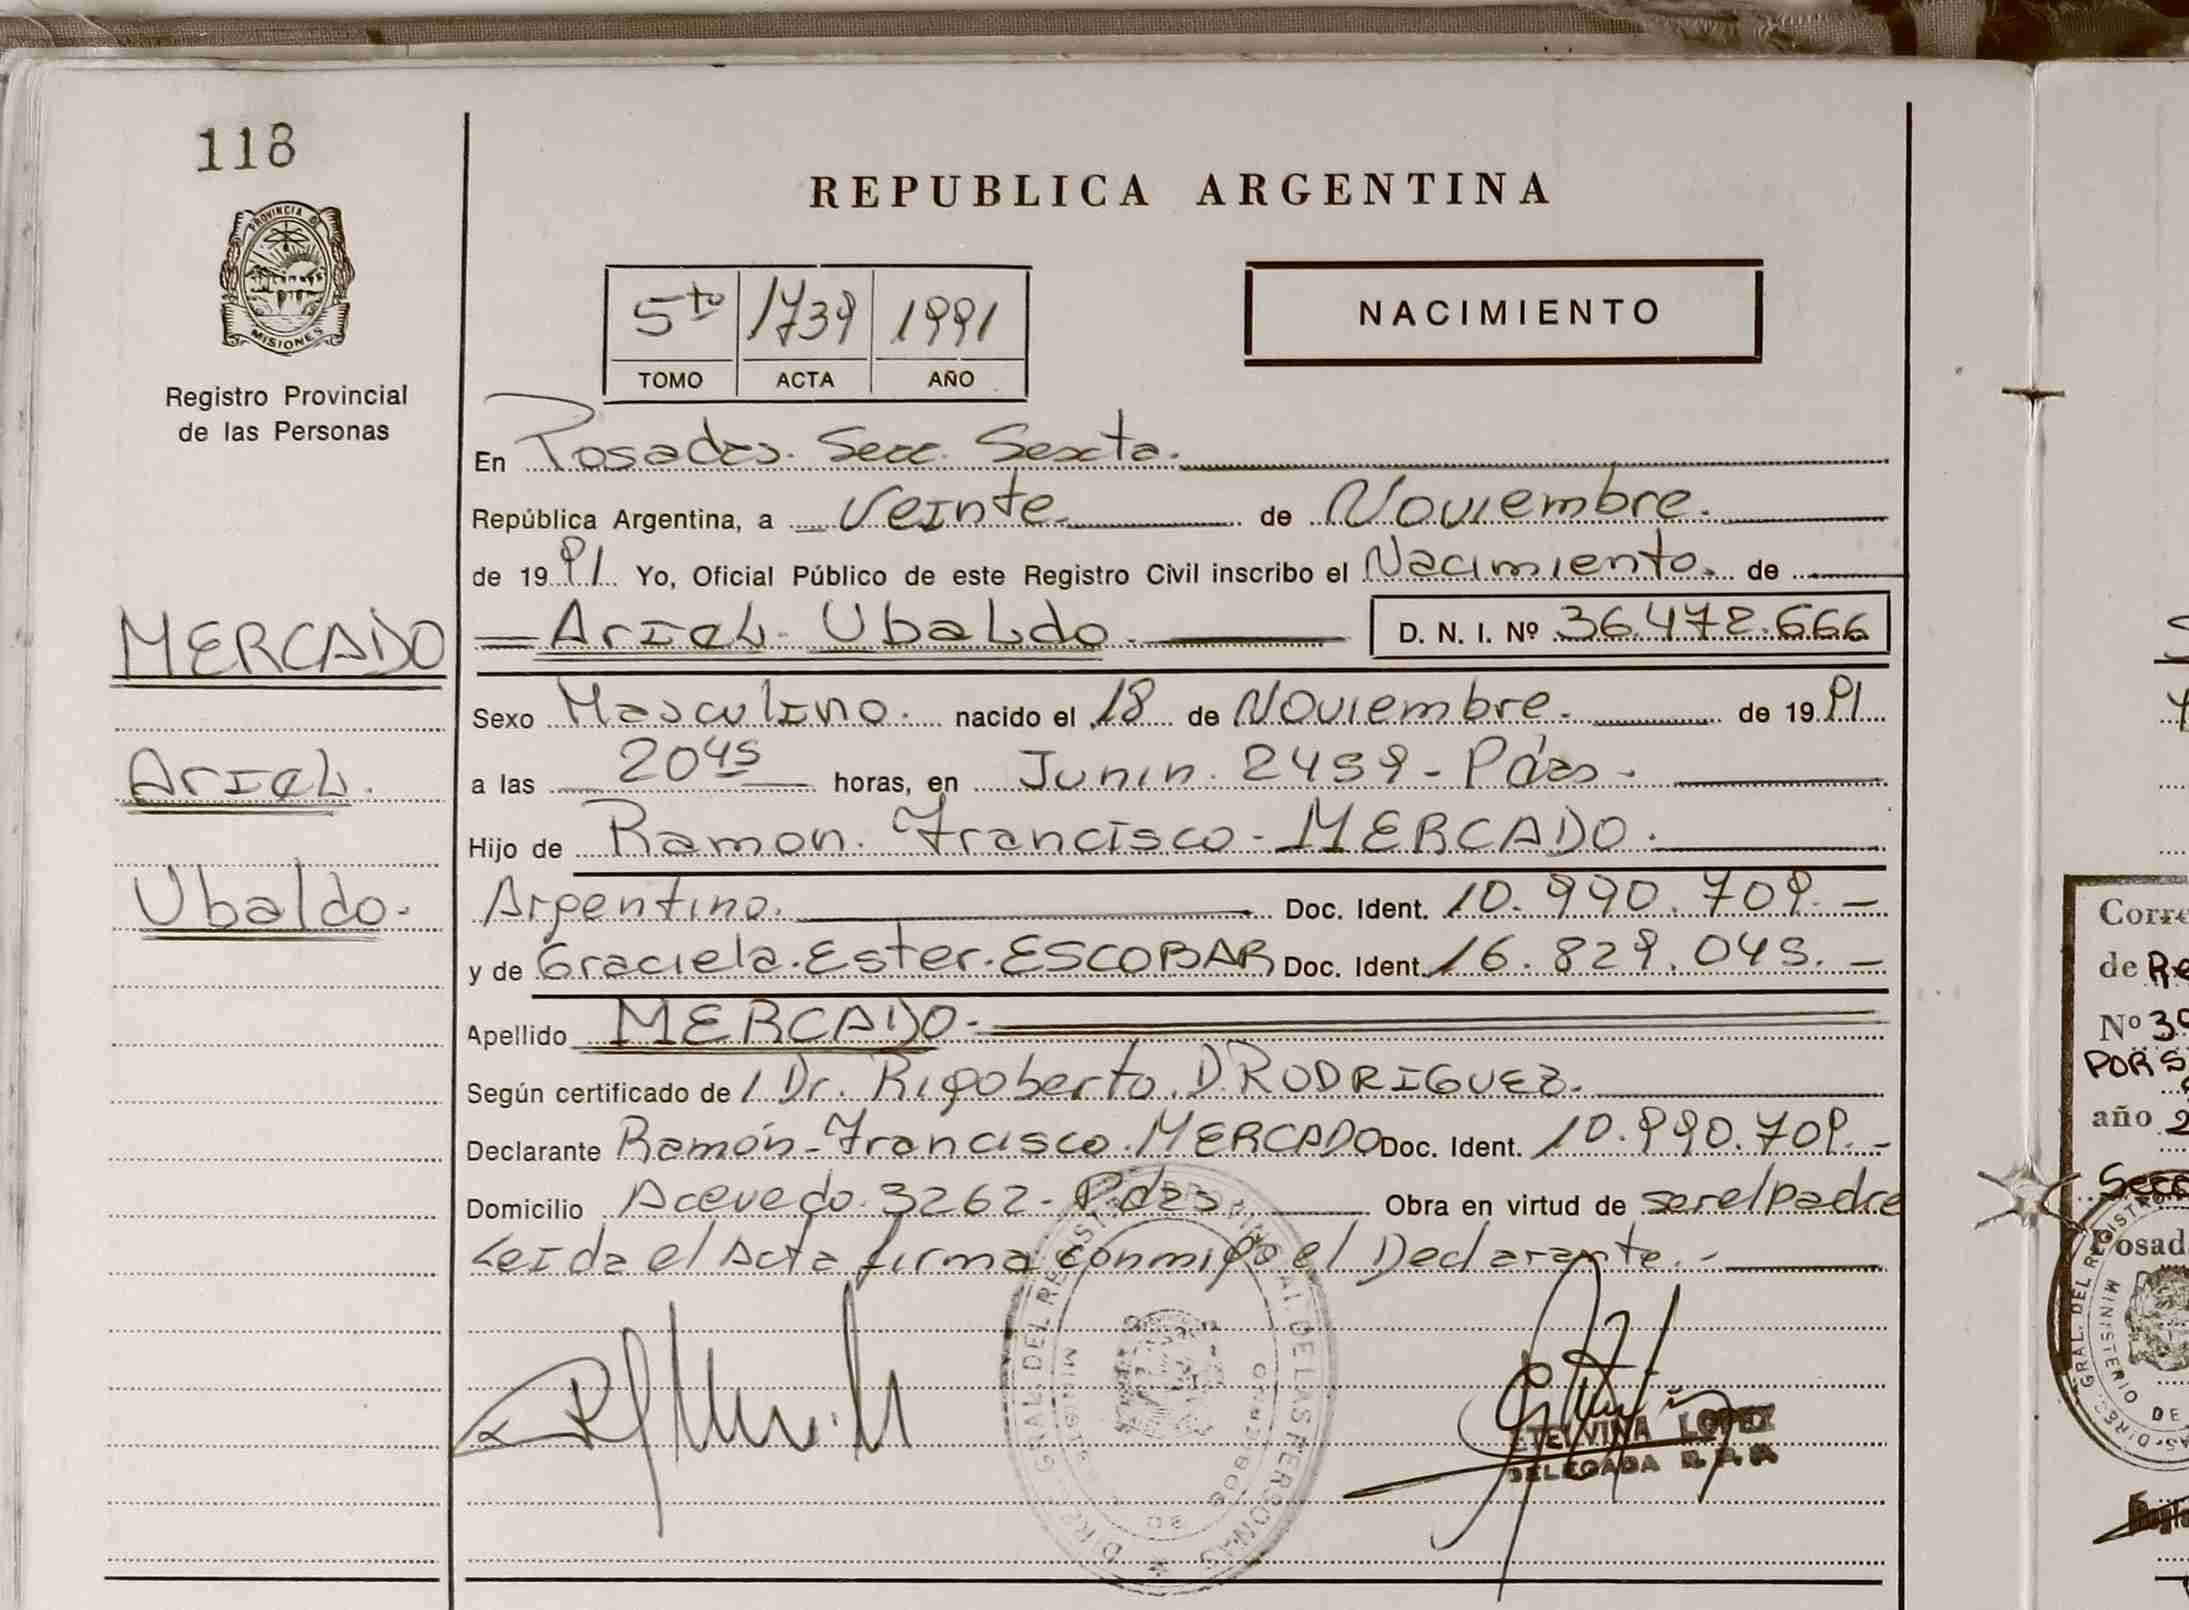 118
PROVINCIA D
MISIONES
Registro Provincial
de las Personas
MERCADO
Ariel.
Ubaldo-
REPUBLICA ARGENTINA
5to 1739 1991
TOMO ACTA AÑO
NACIMIENTO
En Posadas. Secc. Sexta.
República Argentina, a Veinte de Noviembre.
de 1991 Yo, Oficial Público de este Registro Civil inscribo el Nacimiento. de
Ariel. Ubaldo. D. N. I. Nº 36.472.666
Sexo Masculino. nacido el 18 de Noviembre. de 1991
a las 2045 horas, en Junin. 2459- Pdas-
Hijo de Ramon. Francisco- MERCADO.
Argentino. Doc. Ident. 10.990.709.-
y de Graciela. Ester. ESCOBAR Doc. Ident. 16.829.045.-
Apellido MERCADO-
Según certificado de / Dr. Rigoberto. D. RODRIGUEZ.
Declarante Ramón-Francisco. MERCADO Doc. Ident. 10.990.709.-
Domicilio Acevedo. 3262- Pdas Obra en virtud de ser el padre
Leida el Acta firma conmigo el Declarante.-
DIREC. GRAL. DEL REGISTRO PROVINCIAL DE LAS PERSONAS
ETELVINA LOPEZ
DELEGADA R.P.P.
Corre
de Re
Nº 39
POR S
año 2
Secc
Posad
GRAL. DEL REGIST
MINISTERIO DE